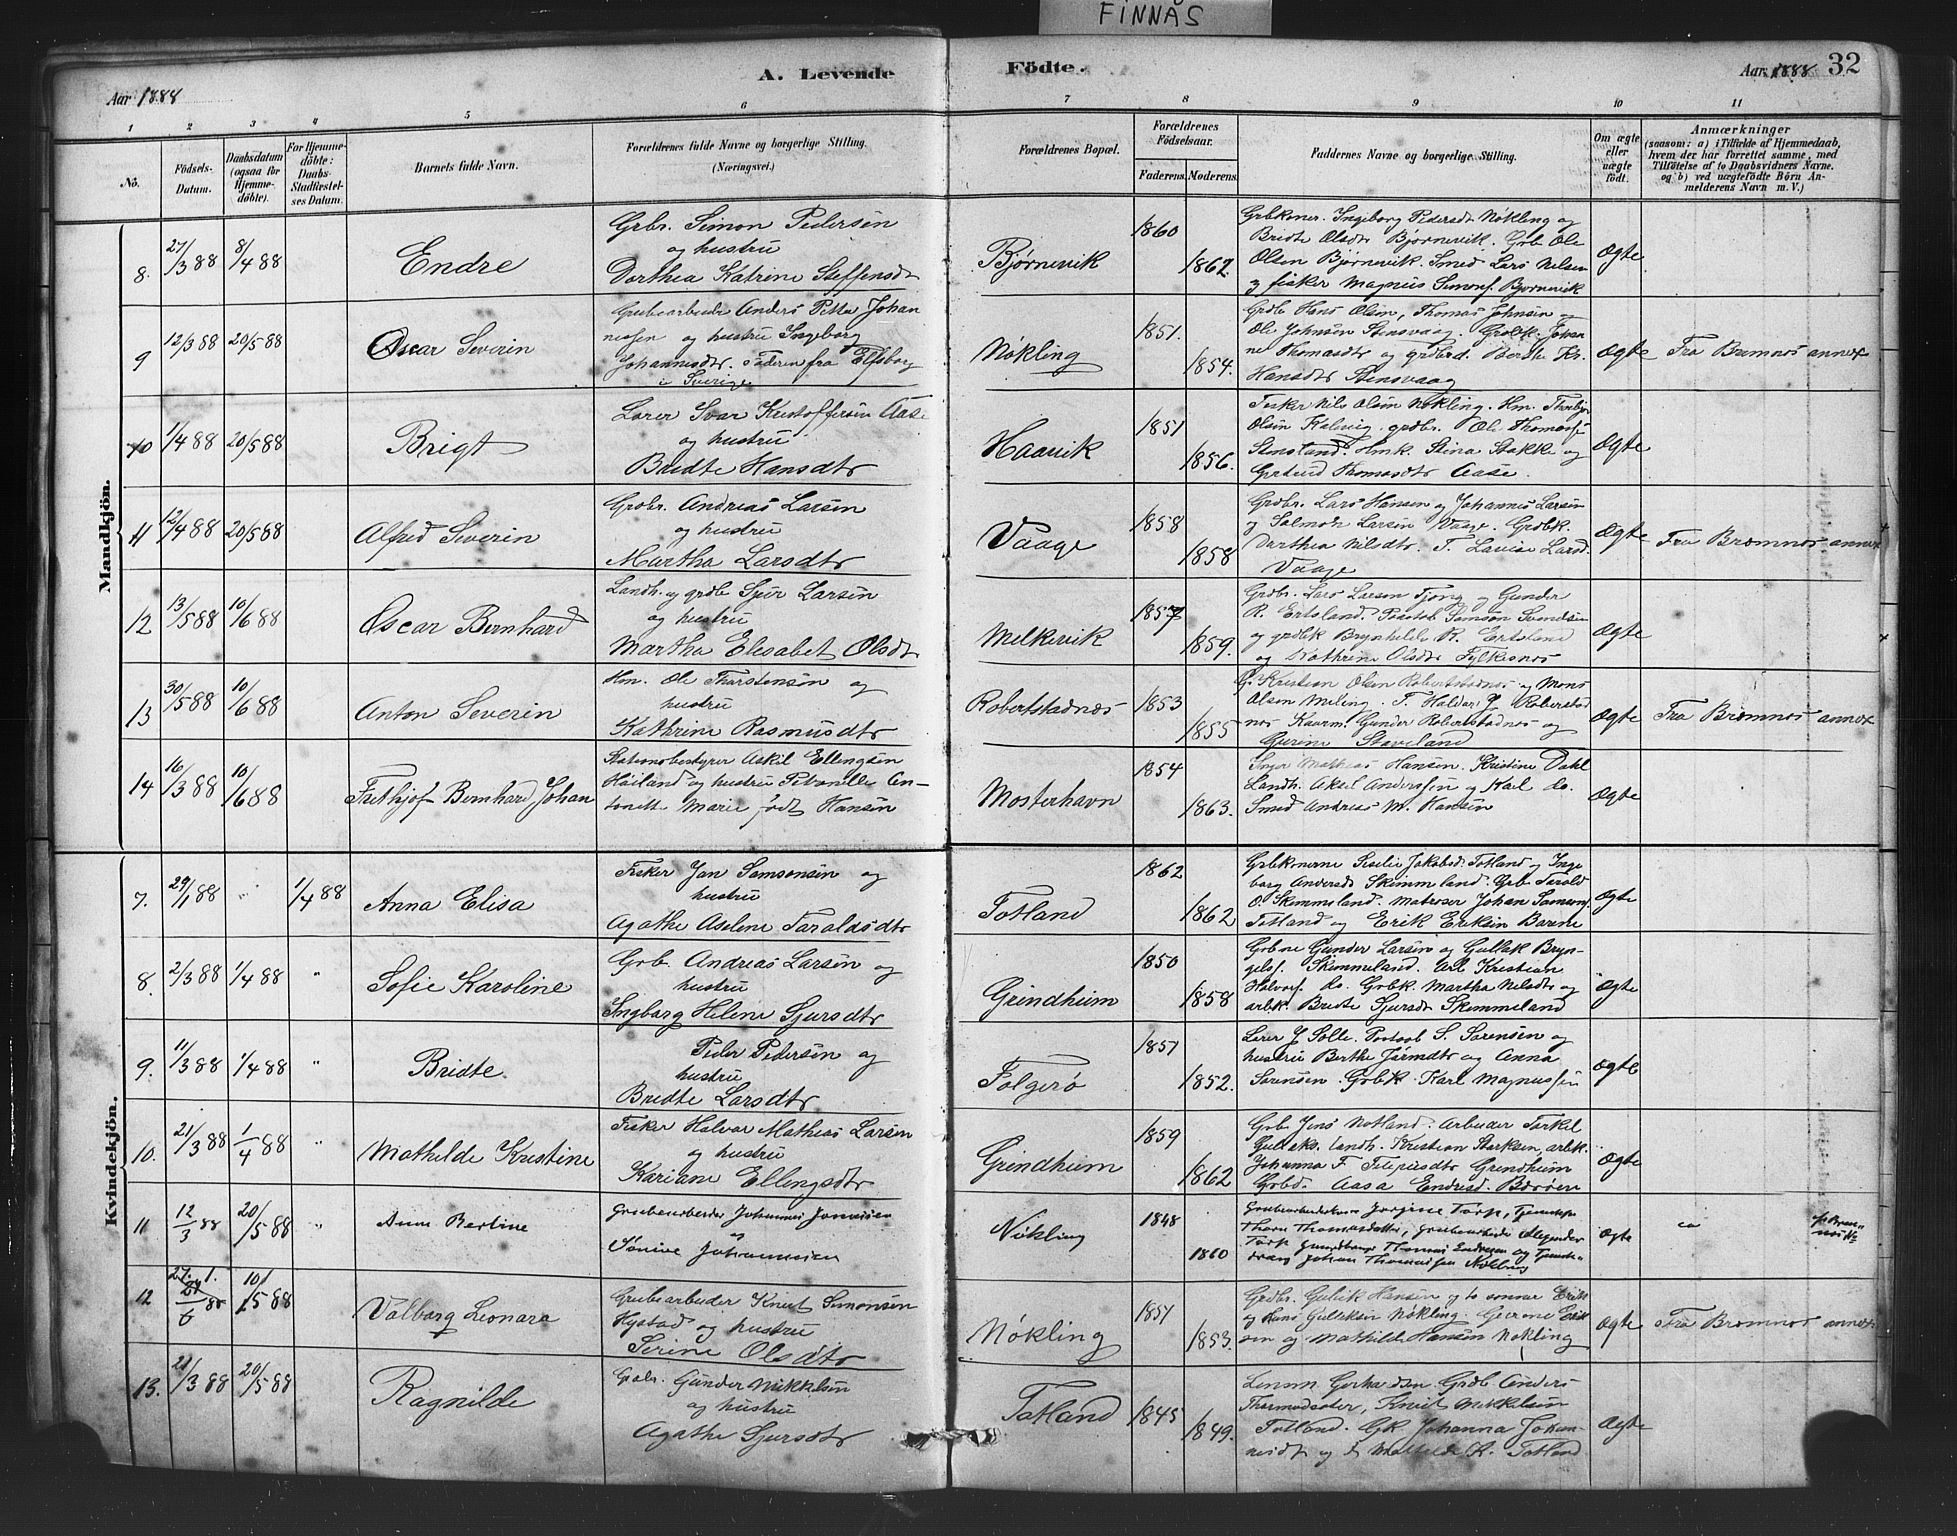 FINNÅS
A. Levende Födte.
32
Aar 1888
Aar 1888
1 2 3 4 5 6 7 8 9 10 11
No.
Födsels-Datum.
Daabsdatum (ogsaa for Hjemmedöbte).
For Hjemmedöbte: Daabs-Stadfæstelses Datum.
Barnets fulde Navn.
Forældrenes fulde Navne og borgerlige Stilling.
(Næringsvei.)
Forældrenes Bopæl.
Forældrenes Födselsaar.
Faderens. Moderens.
Faddernes Navne og borgerlige Stilling.
Om ægte eller uægte födt.
Anmærkninger
(saasom: a) i Tilfælde af Hjemmedaab, hvem der har forrettet samme, med Tilföielse af to Daabsvidners Navne. og b) ved uægtefödte Börn Anmelderens Navn m. V.)
Mandkjön.
8. 27/3 88 8/4 88 Endre
Grbr. Simon Pedersen
og hustru
Dorthea Katrine Steffensdt
Bjørnevik 1860 1862.
Grbkoner. Ingeborg Pedersdt Nøkling og
Bridte Olsdt Bjørnevik. Grb Ole
Olsen Bjørnevik. Smed Lars Nilsen
og fisker Magnus Simons. Bjørnevik
Ægte
9 12/3 88 20/5 88 Oscar Severin
Grubearbeider Anders Petter Johan
nessen og hustru Ingeborg
Johannesdtr. Faderen fra Elfsborg
i Sverige
Nøkling 1851. 1854.
Grdb Hans Olsen, Thomas Johnsen og
Ole Johnsen Stensvaag. Grdbk. Johan
ne Thomasdtr og grdbrd. Berthe Kr.
Hansdtr Stensvaag
Ægte Fra Bremnes annex
10 1/4 88 20/5 88 Brigt
Lærer Ivar Kristoffersen Aase
og hustru
Bridte Hansdtr
Haavik 1851 1856.
Fisker Nils Olsen Nøkling. Hm. Thorbjør
Olsen Kalevig. grdbr. Ole Thomass.
Stensland. Hmk. Stina Stokke og
Gertrud Thomasdtr Aase.
Ægte
11 12/4 88 20/5 88 Alfred Severin
Grdbr. Andreas Larsen
og hustru
Martha Larsdtr
Vaage 1858 1858
Grdbr. Lars Hansen og Johannes Larsen
og Salmon Larsen Vaage. Grdbk.
Darthea Nilsdtr. T. Lavise Larsd.
Vaage
Ægte Fra Bremnes annex
12 13/5 88 10/6 88 Oscar Bernhard
Landh. og grdb Sjur Larsen
og hustru
Martha Elisabet Olsdt
Melkevik 1857 1859.
Grdbr. Lars Larsen Tjong og Gunder
R. Ertsland. Postaab Samson Svendsen
og grdbk Brynhilde R. Ertsland
og Kathrine Olsdtr Fylkesnes
Ægte
13 30/5 88 10/6 88 Anton Severin
Hm. Ole Thorstensen og
hustru
Kathrine Rasmusdtr
Robertstadnæs 1853 1855
G. Kristian Olsen Robertstadnes og Mons
Olsen Meling. F. Haldor Robertstad
nes Gunder Robertstadnes og
Gurine Staveland
Ægte Fra Bremnes annex
14 16/3 88 10/6 88 Frithjof Bernhard Johan
Stationsbestyrer Askil Ellingsen
Høiland og hustru Petronelle An-
tonette Marie født Hansen
Mosterhavn 1854 1863.
Mathias Hansen. Kristine Dahl
Landh. Aksel Anderssen og Karl do.
Smed Andreas M. Hansen
Ægte
Kvindekjön.
7. 29/1 88 " 1/4 88 Anna Elisa
Fisker Jan Samsonsen og
hustru
Agathe Aselene Taraldsdtr
Totland 1862 1862
Grbkonerne Siselie Jakobsd. Totland og Inge
borg Andersdt Skimmeland. Grb Tarald
O. Skimmeland. Matroser Johan Samsons.
Totland og Erik Eriksen Børøen
Ægte
8. 2/3 88 1/4 88 " Sofie Karoline
Grb. Andreas Larsen og
hustru
Ingborg Helene Sjursdtr
Grindheim 1850 1858
Grbne Gunder Larsen og Gullek Bryn-
gels. Skimmeland. Arb Kristian
Halvors. do. Grbk. Martha Nilsdtr og
arbk. Bridte Sjursdt Skimmeland
Ægte
9. 11/3 88 1/4 88 " Bridte
Peder Pedersen og
hustru
Bridte Larsdtr
Folgerø 1851 1852.
Lærer J Solle. Postaab S. Sørensen og
hustru Berthe Jarmdtr og Anna
Sørensen. Grbk. Karl Magnussen
Ægte
10. 21/3 88 1/4 88 " Mathilde Kristine
Fisker Halvar Mathias Larsen
og hustru
Kariane Ellingsdtr
Grindheim 1859 1862
Grb Jens Notland. Arbeider Torkel
Gulleks. Landh. Kristian Starksen, arbk.
Johanna F. Filipusdtr Grindheim
Grbd. Aasa Endresd. Børøen
Ægte
11 12/3 88 20/5 88 " Anna Bertine
Grubearbeider Johannes Jonassen
og
Sønive Johannessen
Nøkling 1848 1860
Grubearbeiderkone Jørgine Torp, Tjenestep.
Thora Thomasdatter, Grubearbeide Alexander
Torp Thomas Endresen og Tjeneste-
dreng Johan Thomassen Nøkling
Ægte
12 10/5 88 Valborg Leonara
Grubearbeider Knut Simonsen
Hystad og hustru
Serine Olsdtr
Nøkling 1851 1853.
Grdbr. Gullik Hansen og to sønner Erik
og Hans Gulleksen Nøkling. Gurine Erik
sen og Mathilde Hansen Nøkling
Ægte Fra Bremnes annex
13. 21/3 88 20/5 88 Ragnilde
Grdbr. Gunder Mikkelsen
og hustru
Agathe Sjursdtr
Totland 1845 1849.
Lensm. Gerhardsen Grdb. Anders
Thormodsæter, Knut Mikkelsen
Totland. Gk Johanna Johan-
nesdt og Mathilde A. Totland
Ægte